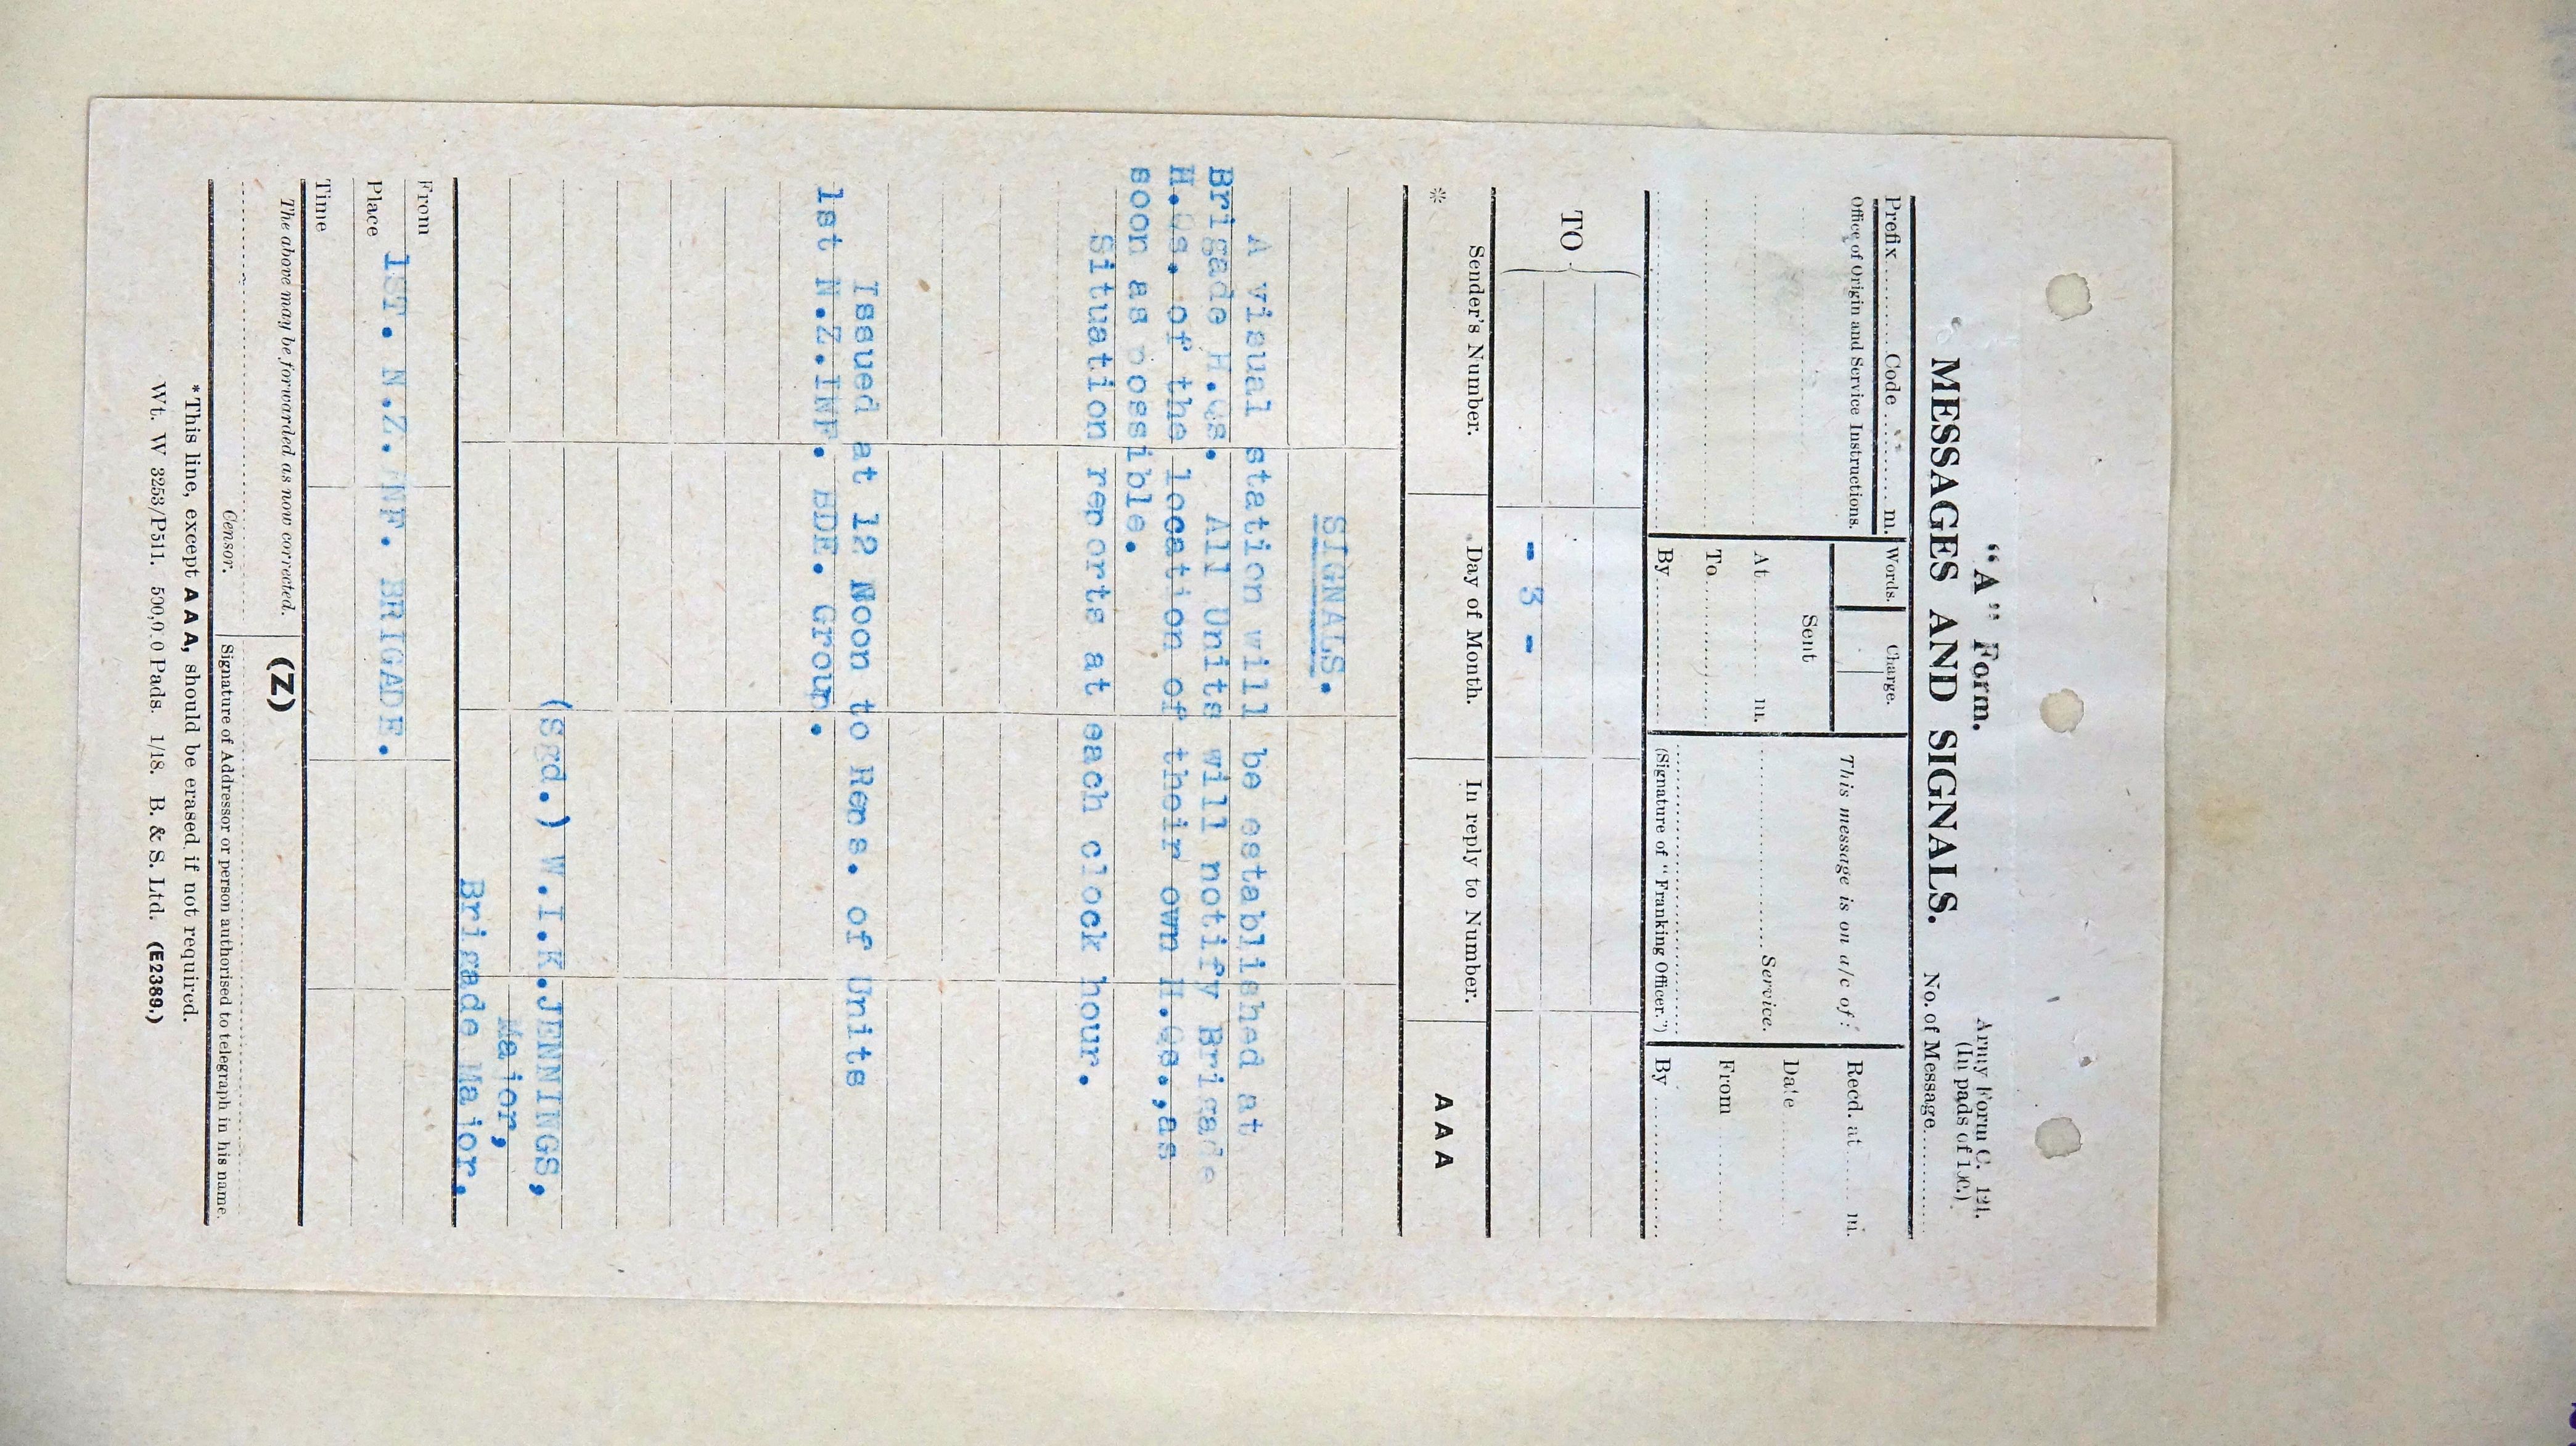 "A" Form.
Army Form C. 121.
MESSAGES AND SIGNALS.
No. of Message
Prefix Code m.
Words. Charge.
This message is on a/c of:
Recd. at m.
Office of Origin and Service Instructions.
Sent
Date
At m.
Service.
From
To
By
(Signature of "Franking Officer.")
By
TO
- 3 -
Sender's Number.
Day of Month.
In reply to Number.
AAA
*
SIGNALS.
A visual station will be established at
Brigade H.Qs. All Units will notify Brigade
H.Qs. of the location of their own H.Qs.,as
soon as possible.
Situation reports at each clock hour.
Issued at 12 Noon to Reps. of Units
1st N.Z.INF. BDE. Group.
(Sgd.) W.I.K.JENNINGS,
Major,
Brigade Major.
From
Place 1ST. N.Z. INF. BRIGADE.
Time
The above may be forwarded as now corrected.
(Z)
Censor.
Signature of Addressor or person authorised to telegraph in his name.
*This line, except AAA, should be erased if not required.
Wt. W 3253/P511. Pads. 1/18. B. & S. Ltd. (E2389.)